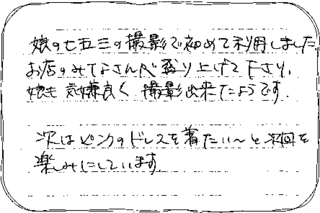 娘の七五三の撮影で初めて利用しました
お店のみなさんが盛り上げて下さり、
娘も気嫌良く撮影出来たようです。
次はピンクのドレスを着たい〜と次回を
楽しみにしています